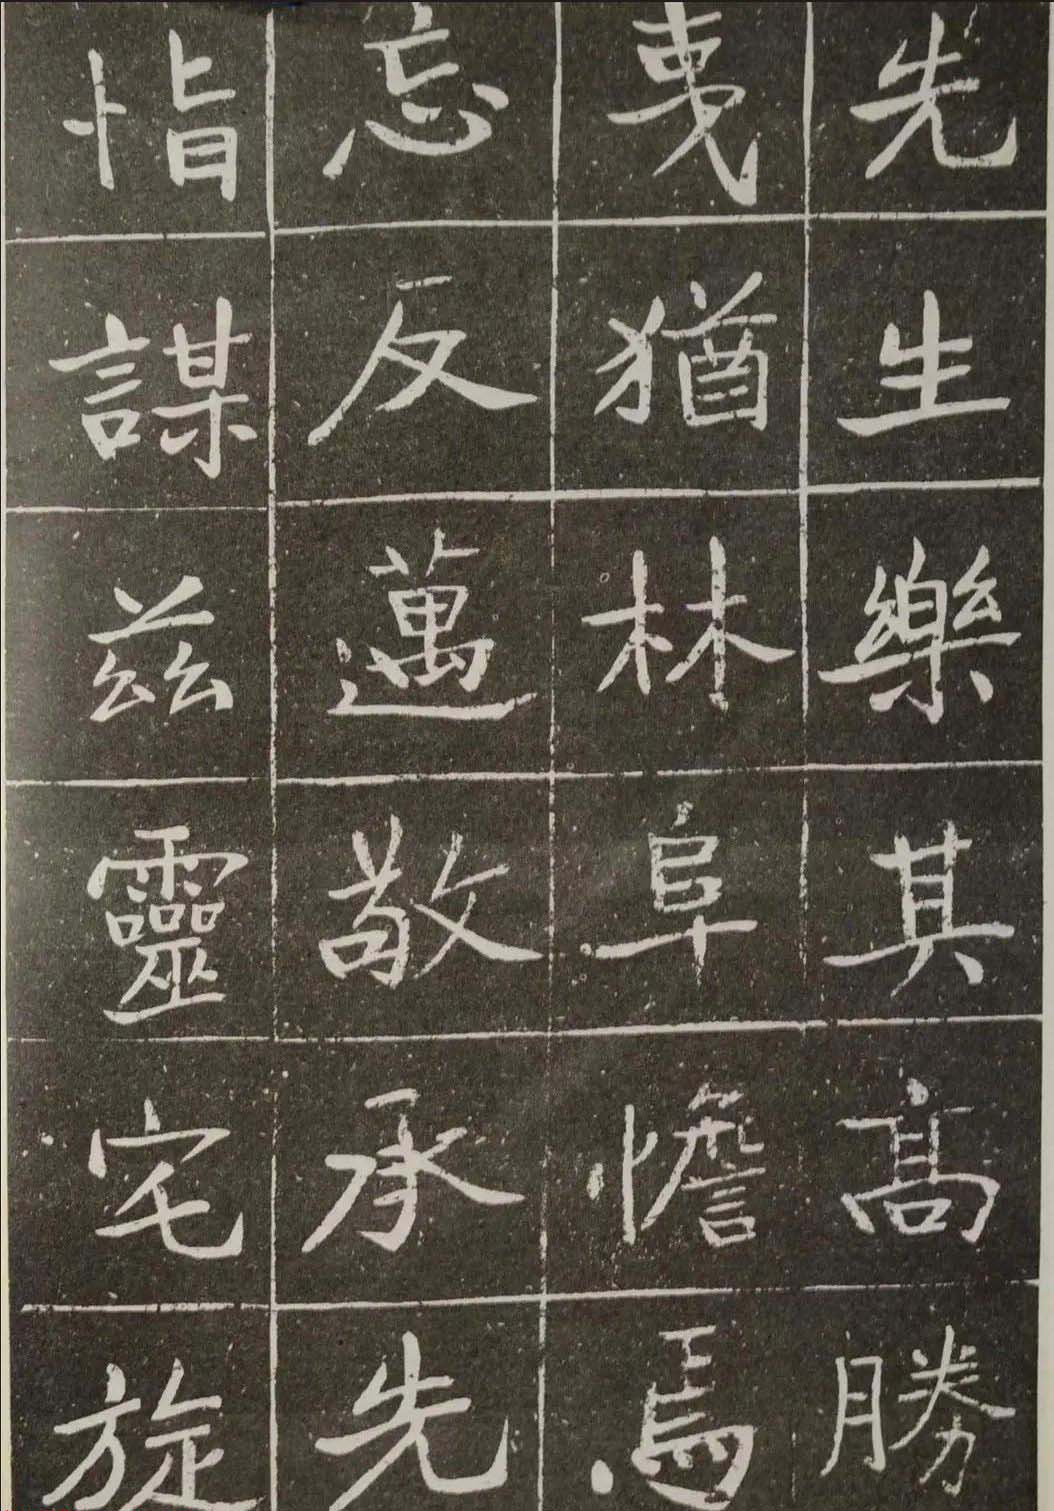 先生樂其高勝
夷猶林阜憺焉
忘反邁敬承先
恉謀茲靈宅旋